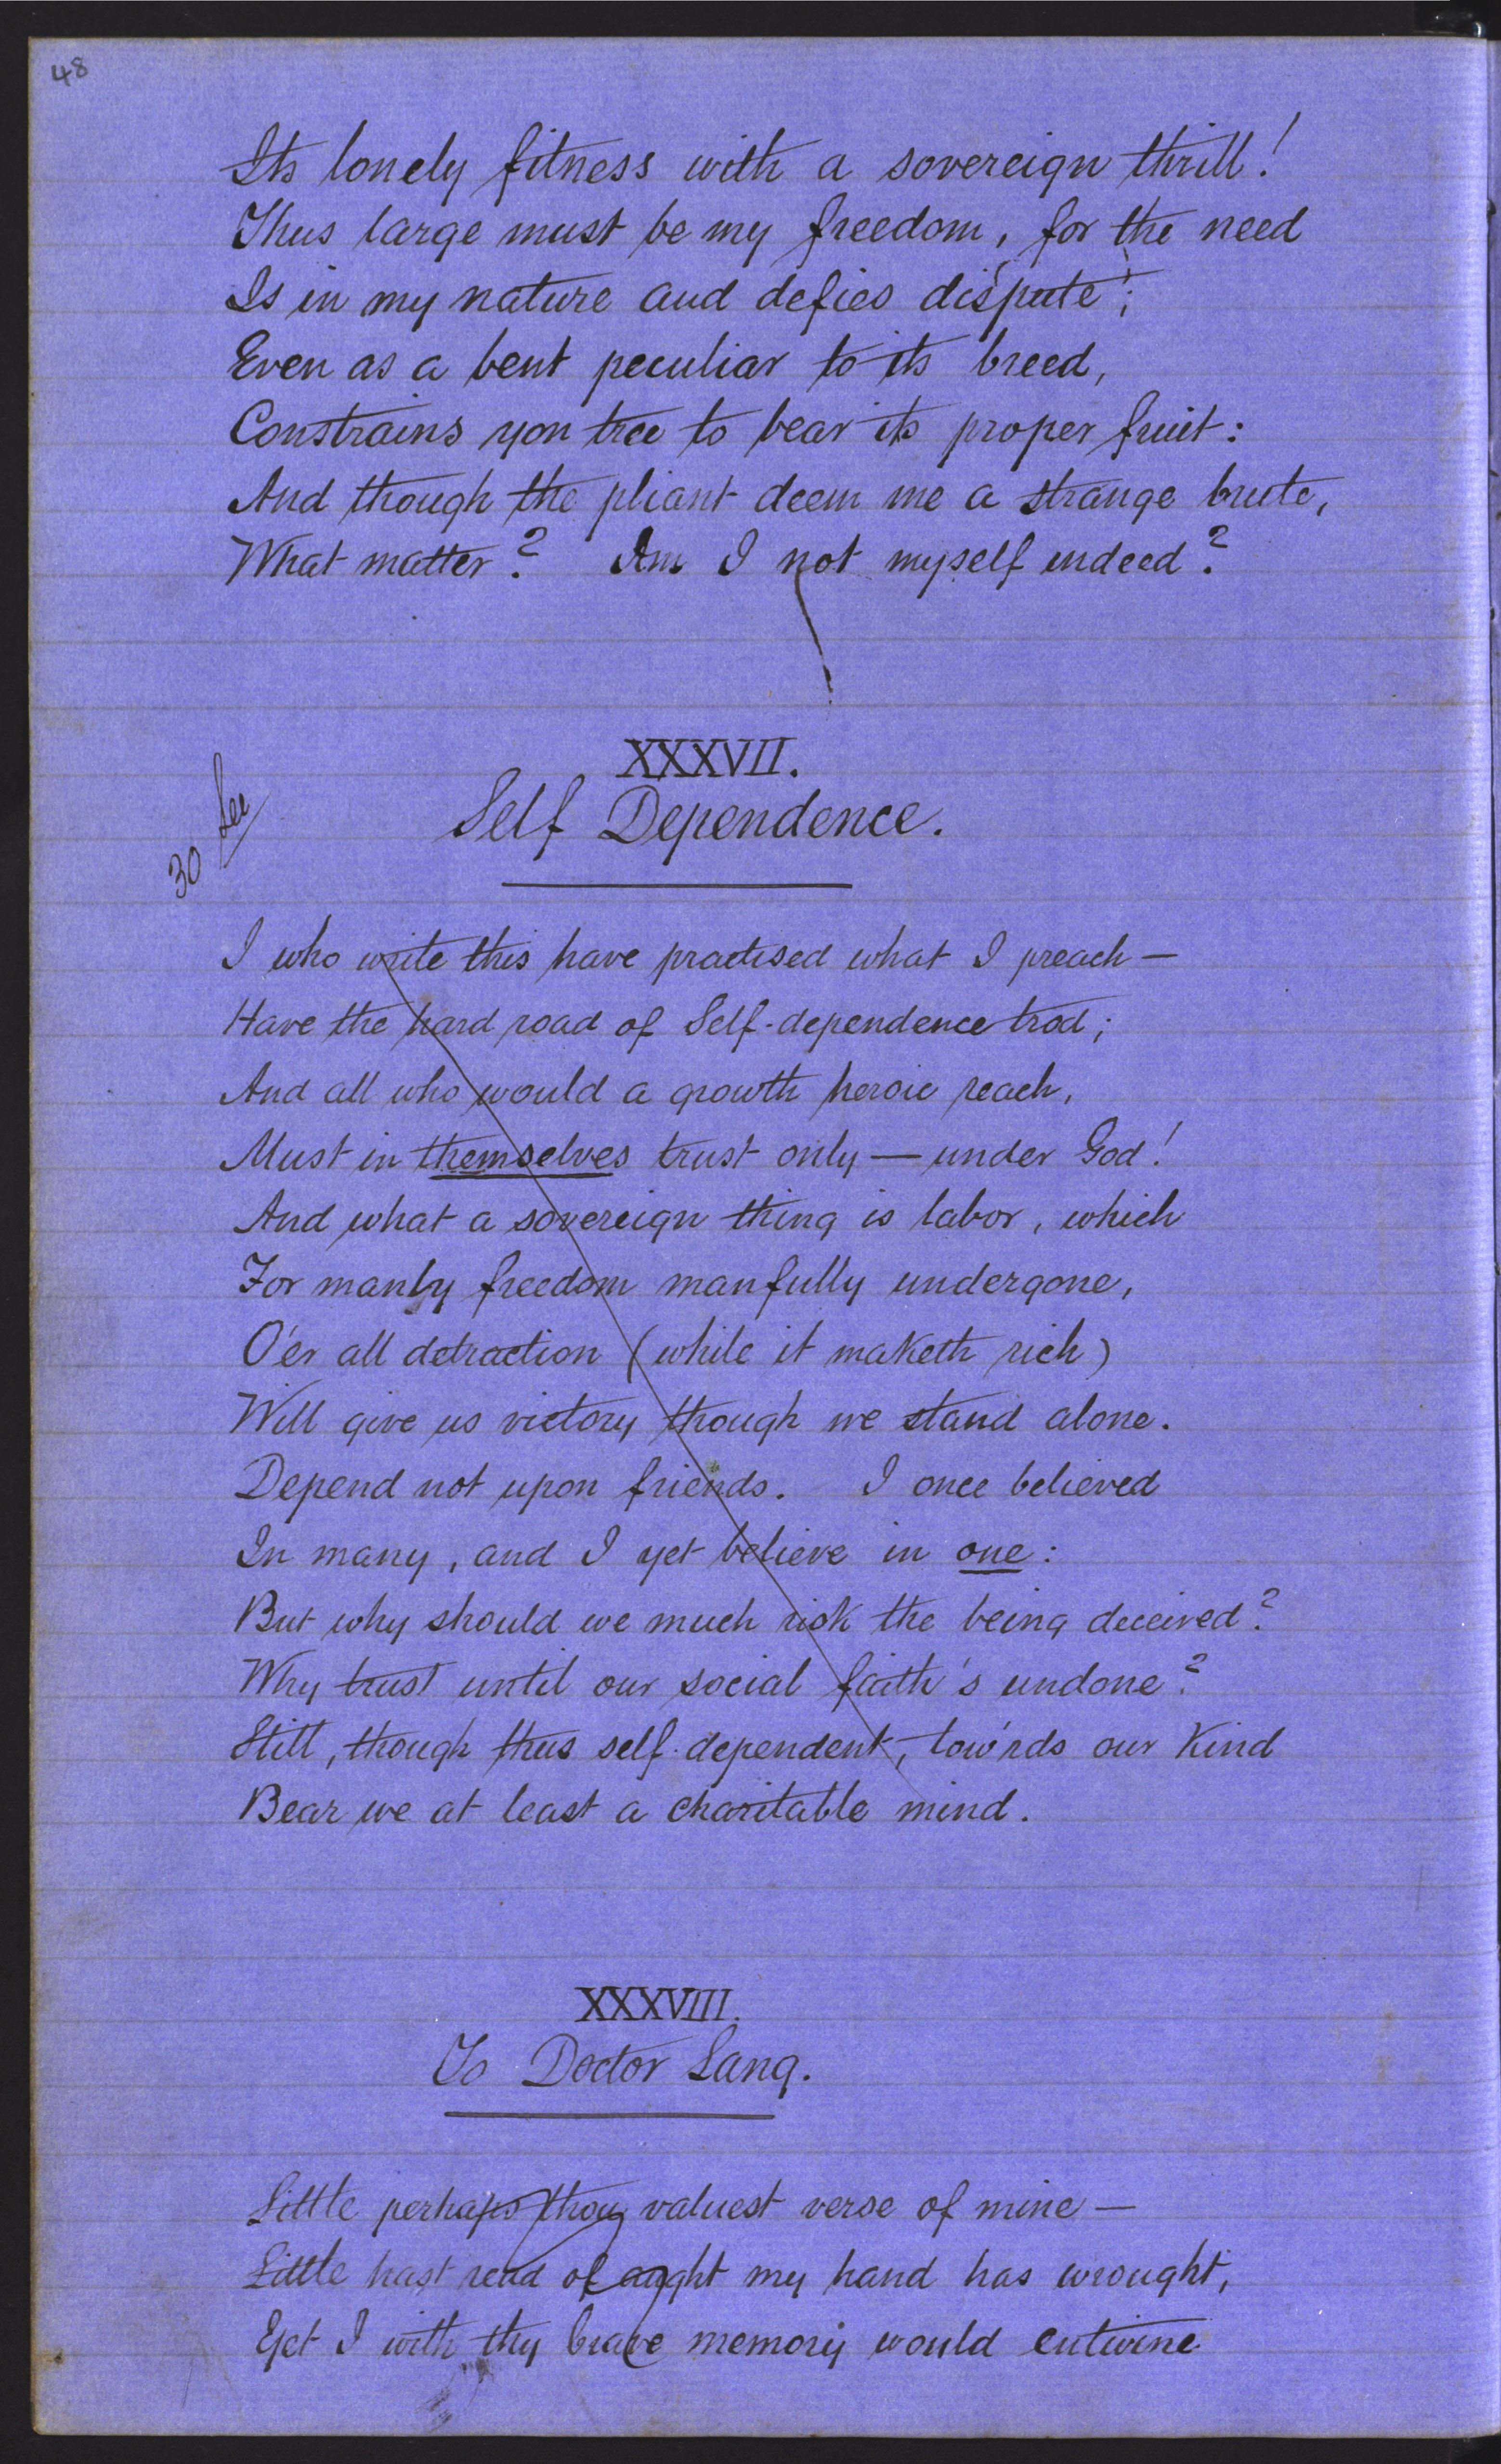 48
Its lonely fitness with a sovereign thrill!
Thus large must be my freedom, for the need
Is in my nature and defies dispute;
Even as a bent peculiar to its breed,
Constrains yon tree to bear its proper fruit:
And though the pliant deem me a strange brute,
What matter? Am I not myself indeed?
XXXVII.
Self Dependence.
30
I who write this have practised what I preach —
Have the hard road of Self-dependence trod;
And all who would a growth heroic reach,
Must in themselves trust only — under God!
And what a sovereign thing is labor, which
For manly freedom manfully undergone,
O'er all detraction (while it maketh rich)
Will give us victory though we stand alone.
Depend not upon friends. I once believed
In many, and I yet believe in one:
But why should we much risk the being deceived?
Why trust until our social faith's undone?
Still, though thus self-dependent, tow'rds our Kind
Bear we at least a charitable mind.
XXXVIII.
To Doctor Lang.
Little perhaps thou valuest verse of mine —
Little hast read of aught my hand has wrought,
Yet I with thy brave memory would entwine